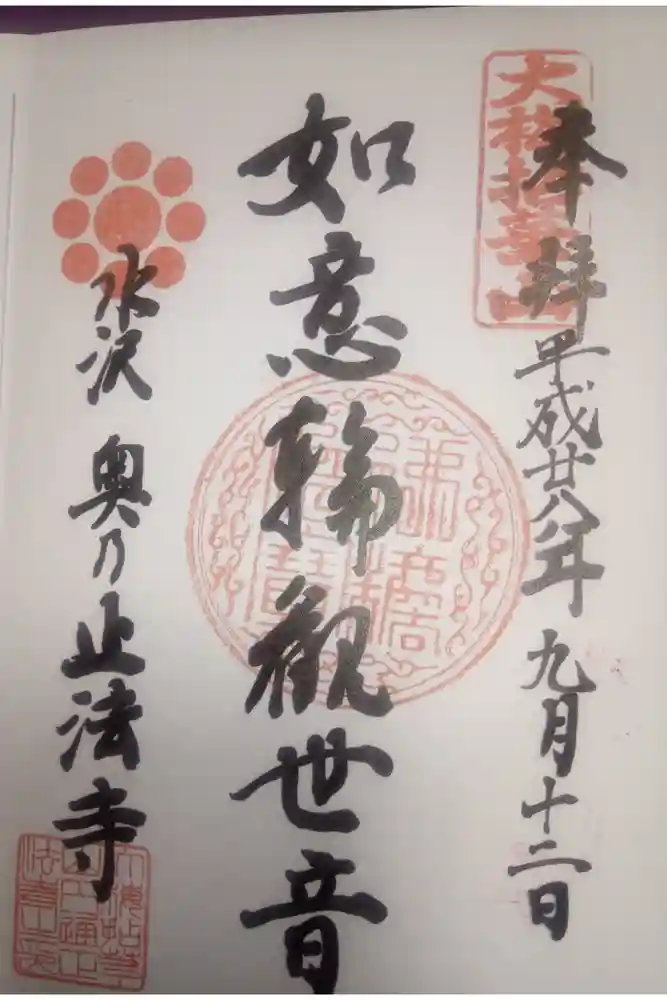 大梅拈華山
奉拝 平成廿八年 九月十二日
如意輪觀世音
水沢 奥乃正法寺